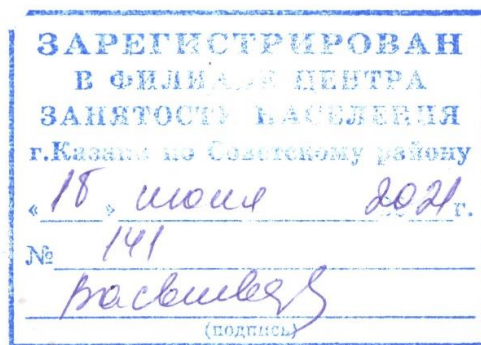 ЗАРЕГИСТРИРОВАН
В ФИЛИАЛЕ ЦЕНТРА
ЗАНЯТОСТИ НАСЕЛЕНИЯ
г.Казани по Советскому району
«18» июня 2021 г.
№ 141
(подпись)